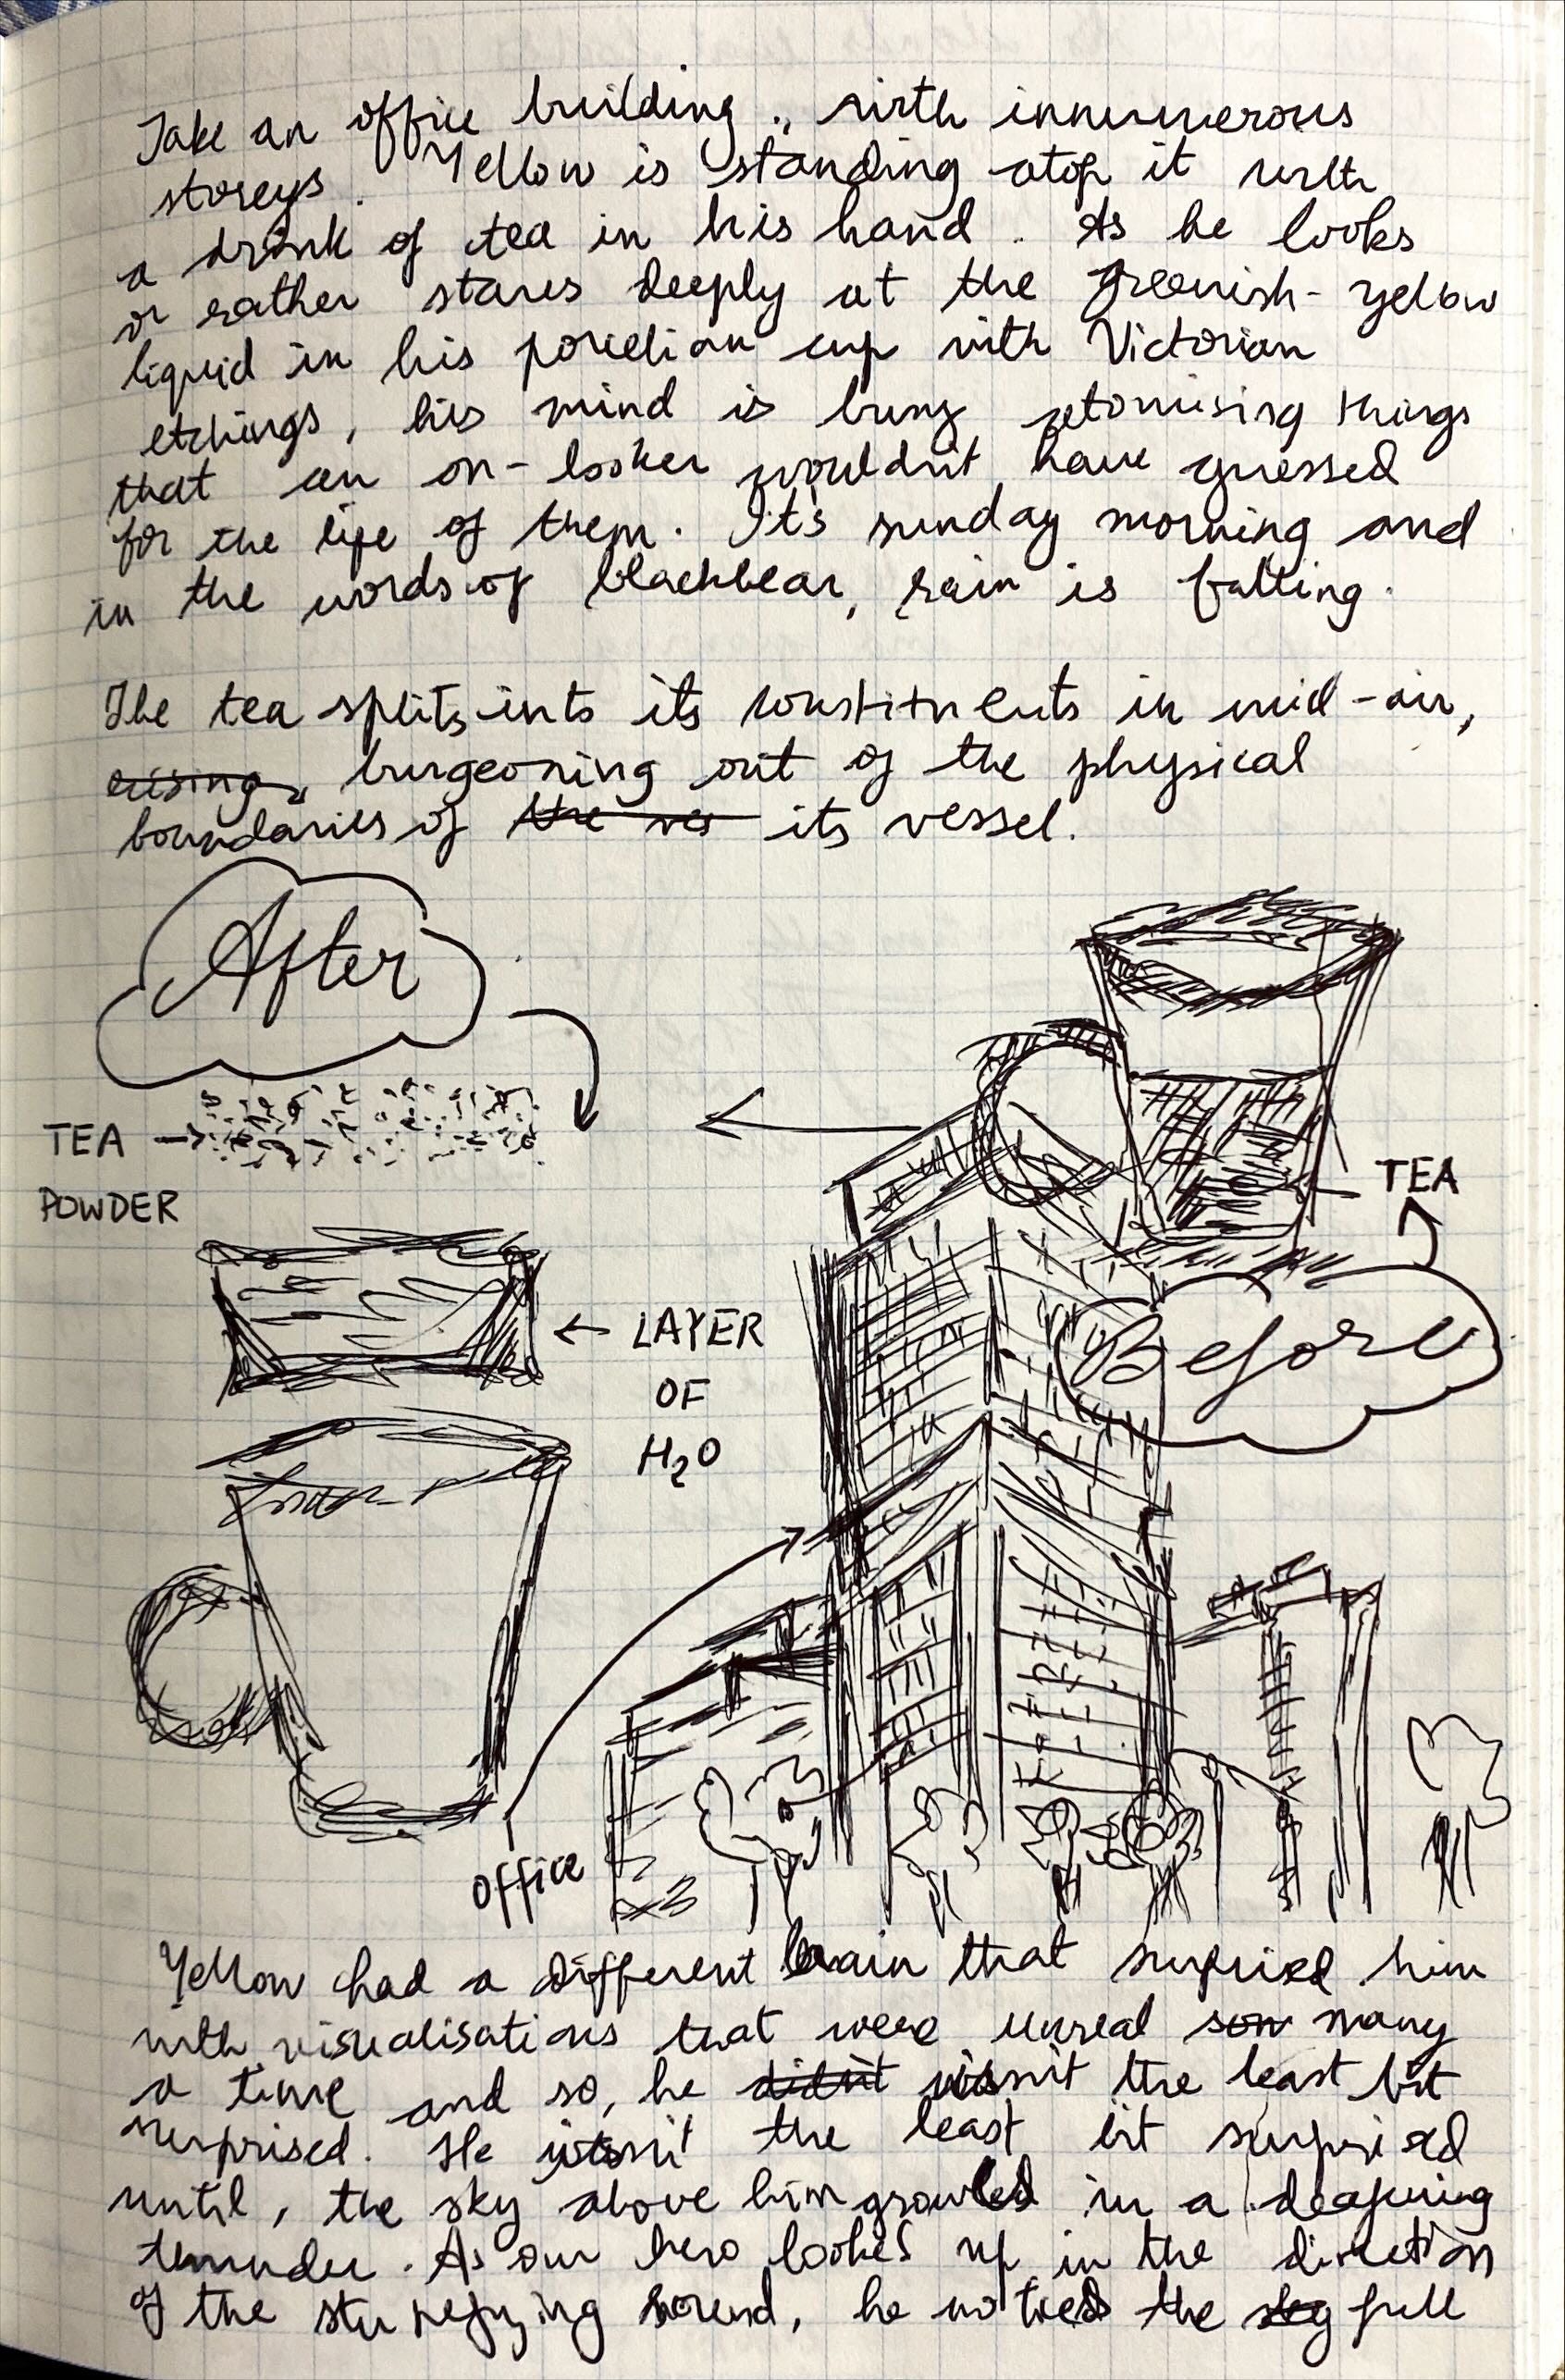 Take an office building, with innumerous
storeys. Yellow is standing atop it with
a drink of tea in his hand. As he looks
or rather stares deeply at the greenish-yellow
liquid in his porcelian cup with Victorian
etchings, his mind is busy atomising things
that an on-looker wouldn't have guessed
for the life of them. It's sunday morning and
in the words of blackbear, rain is falling.
The tea splits into its constituents in mid-air,
rising, burgeoning out of the physical
boundaries of the ves its vessel.
After
TEA
POWDER
TEA
Before
LAYER
OF
H₂O
Office
Yellow had a different brain that surprised him
with visualisations that were unreal so many
a time and so, he didn't wasn't the least bit
surprised. He wasn't the least bit surprised
until, the sky above him growled in a deafening
thunder. As our hero looked up in the direction
of the stupefying sound, he noticed the sky full